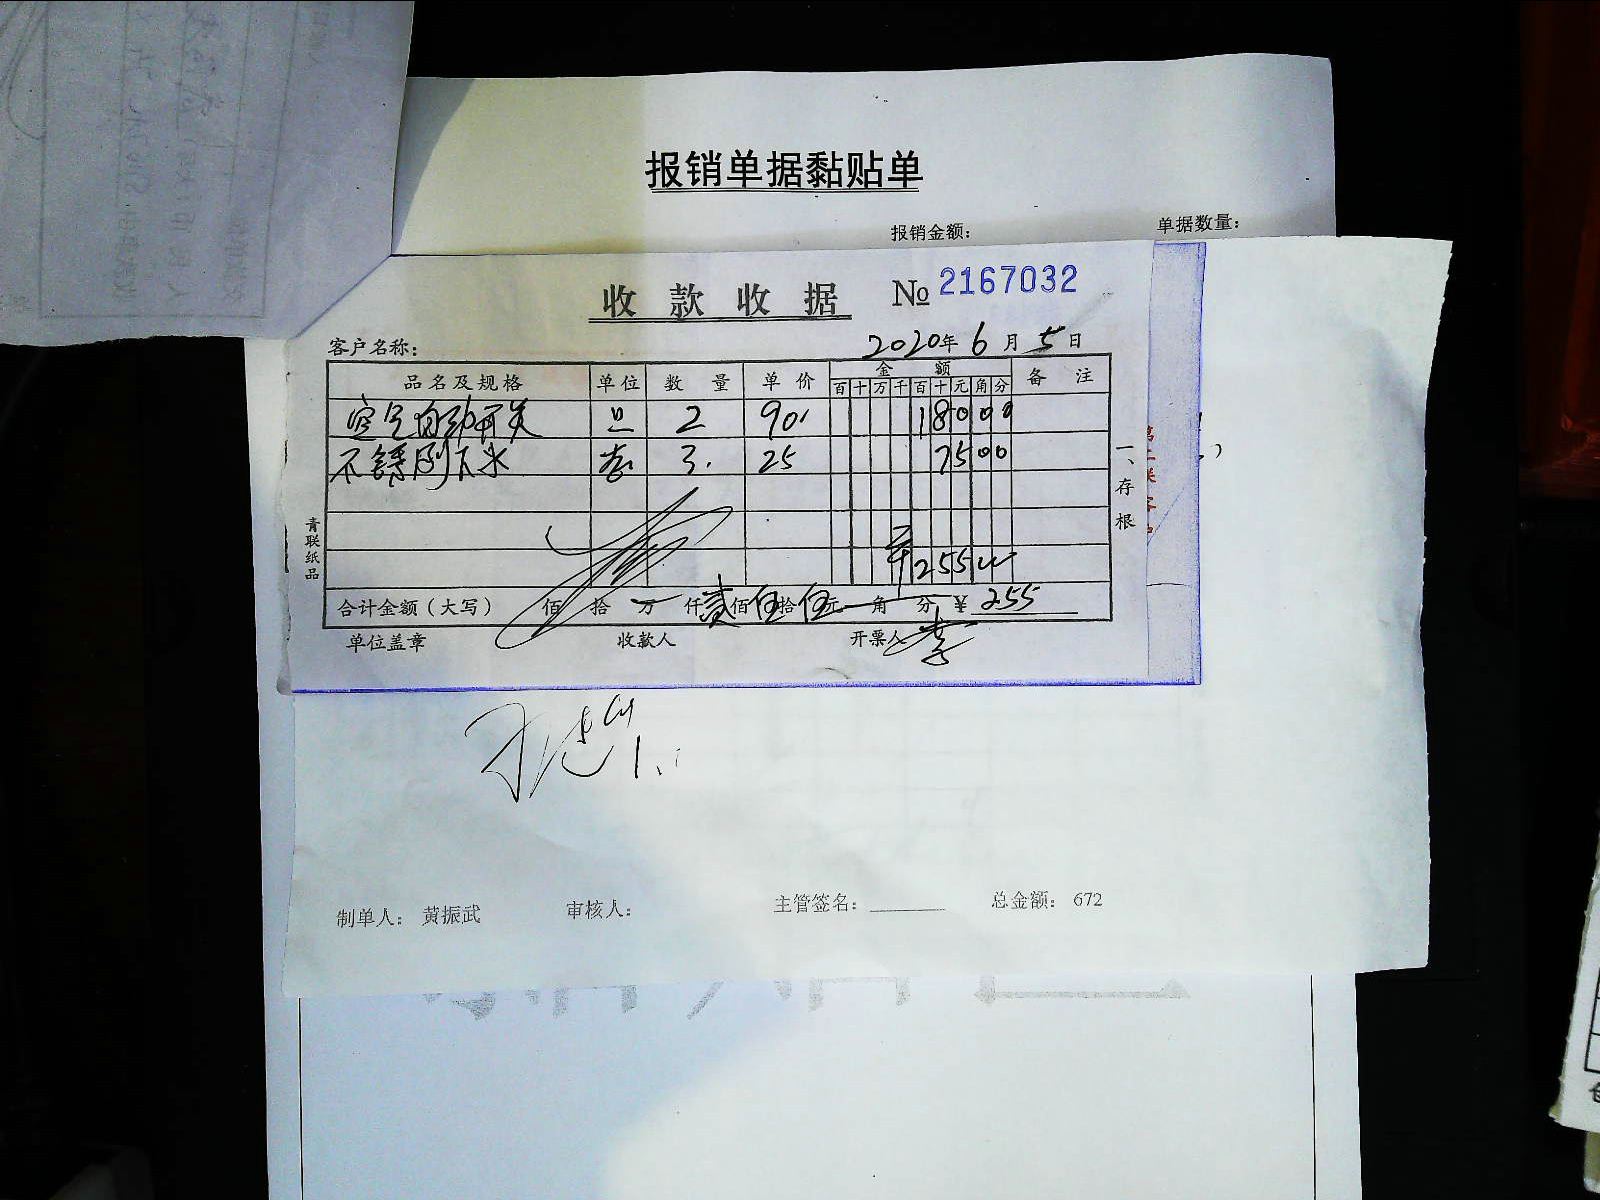 报销单据黏贴单
报销金额： 单据数量：
收款收据 № 2167032
客户名称： 2020年6月5日
品名及规格 单位 数量 单价 金额 备注
百十万千百十元角分
自动开关 只 2 90 18000
不锈刚下水 套 3 25 7500
¥25500
合计金额（大写） 佰 拾 万 仟贰佰伍拾伍元 角 分 ¥ 255
单位盖章 收款人 开票人
青联纸品
一、存根
制单人： 黄振武 审核人： 主管签名： 总金额： 672